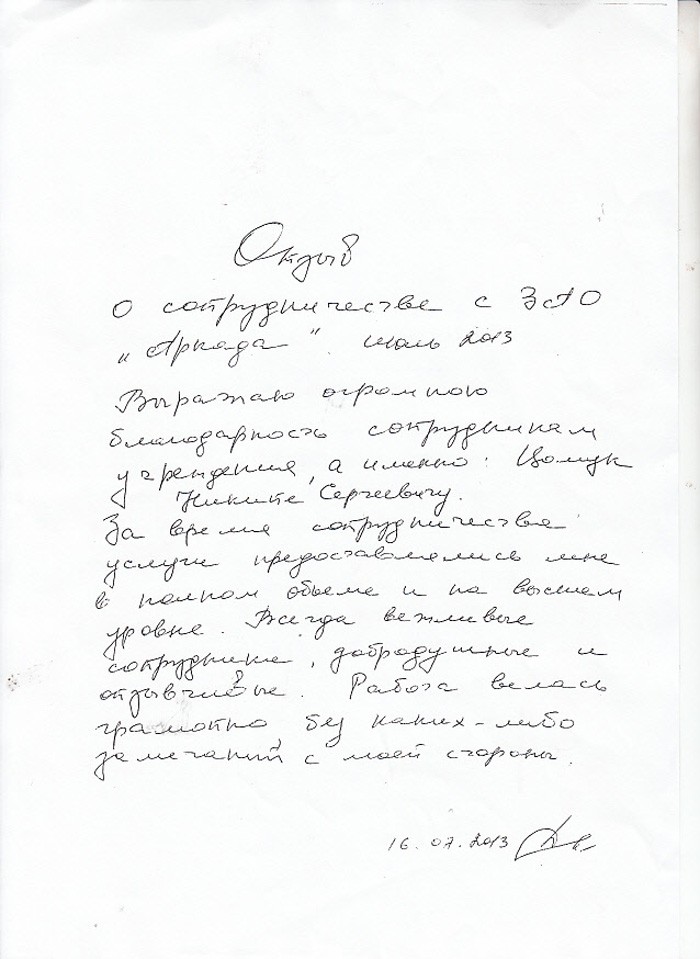 Отзыв
О сотрудничестве с ЗАО
„Аркада". июль 2013
Выражаю огромную
благодарность сотрудникам
учреждения, а именно: Цомук
Никите Сергеевичу.
За время сотрудничества
услуги предоставлялись мне
в полном объеме и на высшем
уровне. Всегда вежливые
сотрудники, добродушные и
отзывчивые. Работа велась
грамотно, без каких-либо
замечаний с моей стороны.
16.07.2013